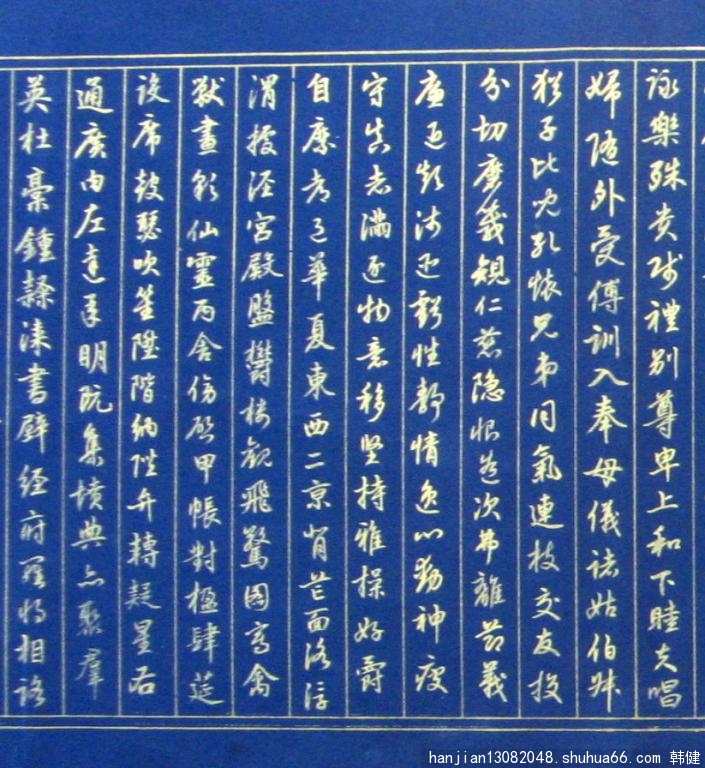 詠樂殊貴賤禮別尊卑上和下睦夫唱
婦隨外受傅訓入奉母儀諸姑伯叔
猶子比兒孔懷兄弟同氣連枝交友投
分切磨箴規仁慈隐恻造次弗離節義
廉退顛沛匪虧性靜情逸心動神疲
守真志滿逐物意移坚持雅操好爵
自縻都邑華夏東西二京背芒面洛浮
渭據涇宮殿盤鬱樓觀飛驚圖寫禽
獸畫彩仙靈丙舍傍啟甲帳對楹肆筵
設席鼓瑟吹笙陞階納陛弁轉疑星右
通廣内左達承明既集墳典亦聚羣
英杜稾鍾隸漆書壁經府羅將相路
hanjian13082048.shuhua66.com 韩健